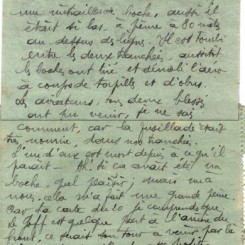 une mitrailleuse boche, aussi il
était si bas à peine à 80 mètres
au dessus des lignes. Il est tombé
entre les deux tranchées, aussitôt
les boches ont tiré et démoli l'aéro
à coups de torpilles et d'obus.
les aviateurs tous deux blessés
ont pu venir, je ne sais
comment, car la fusillade était
très nourrie, dans nos tranchées.
L'un d'eux est mort depuis à ce qu'il
parait. Ah! si ça avait été un
boche quel plaisir; mais un à
nous, cela m'a fait une grande peine.
Car la carte de
de Joff est
front, ce serait son tour à venir par la